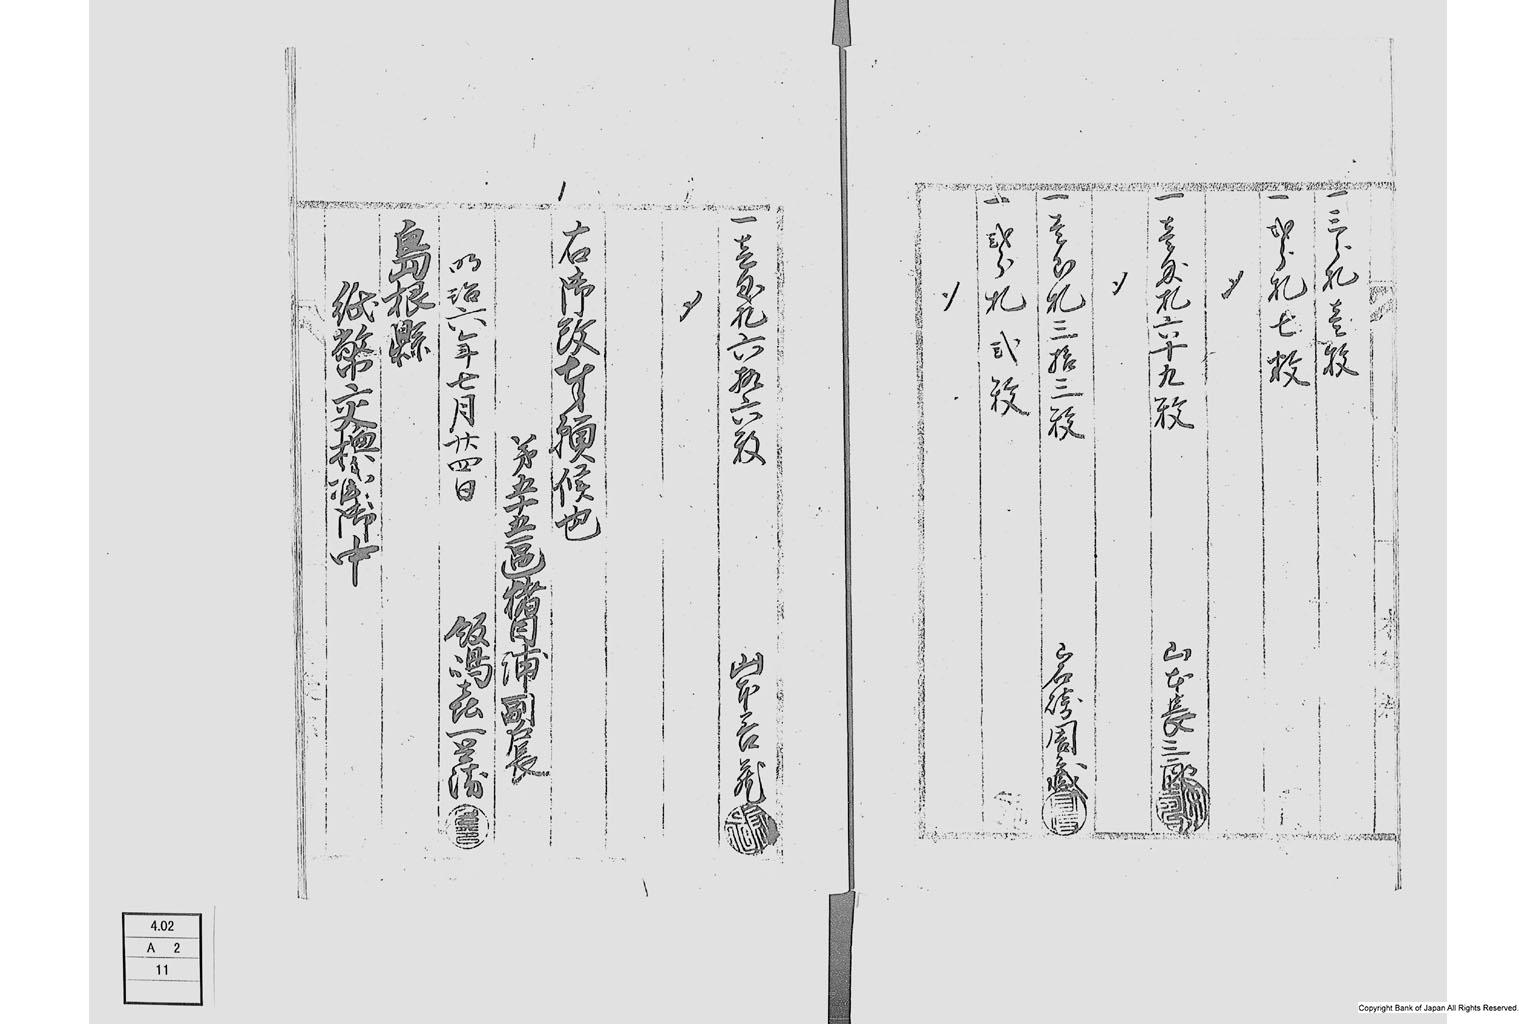 一三分札壱枚
一弐分札七枚
〆
一壱匁札六十九枚
山本長三郎
〆
一壱匁札三拾三枚
岩崎周蔵
一弐分札弐枚
〆
一壱匁札六拾六枚
山本善蔵
〆
右御改奉願候也
第五十五区猪目浦副戸長
明治六年七月廿四日
飯嶋喜一兵衛
島根縣
紙幣交換御中
4.02
A 2
11
Copyright Bank of Japan All Rights Reserved.